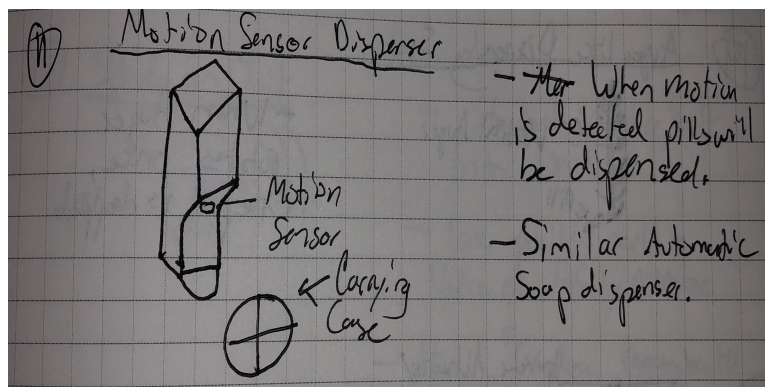 11
Motion Sensor Disperser
Motion
Sensor
Carrying
Case
- When motion
is detected pills will
be dispensed.
- Similar Automatic
Soap dispenser.